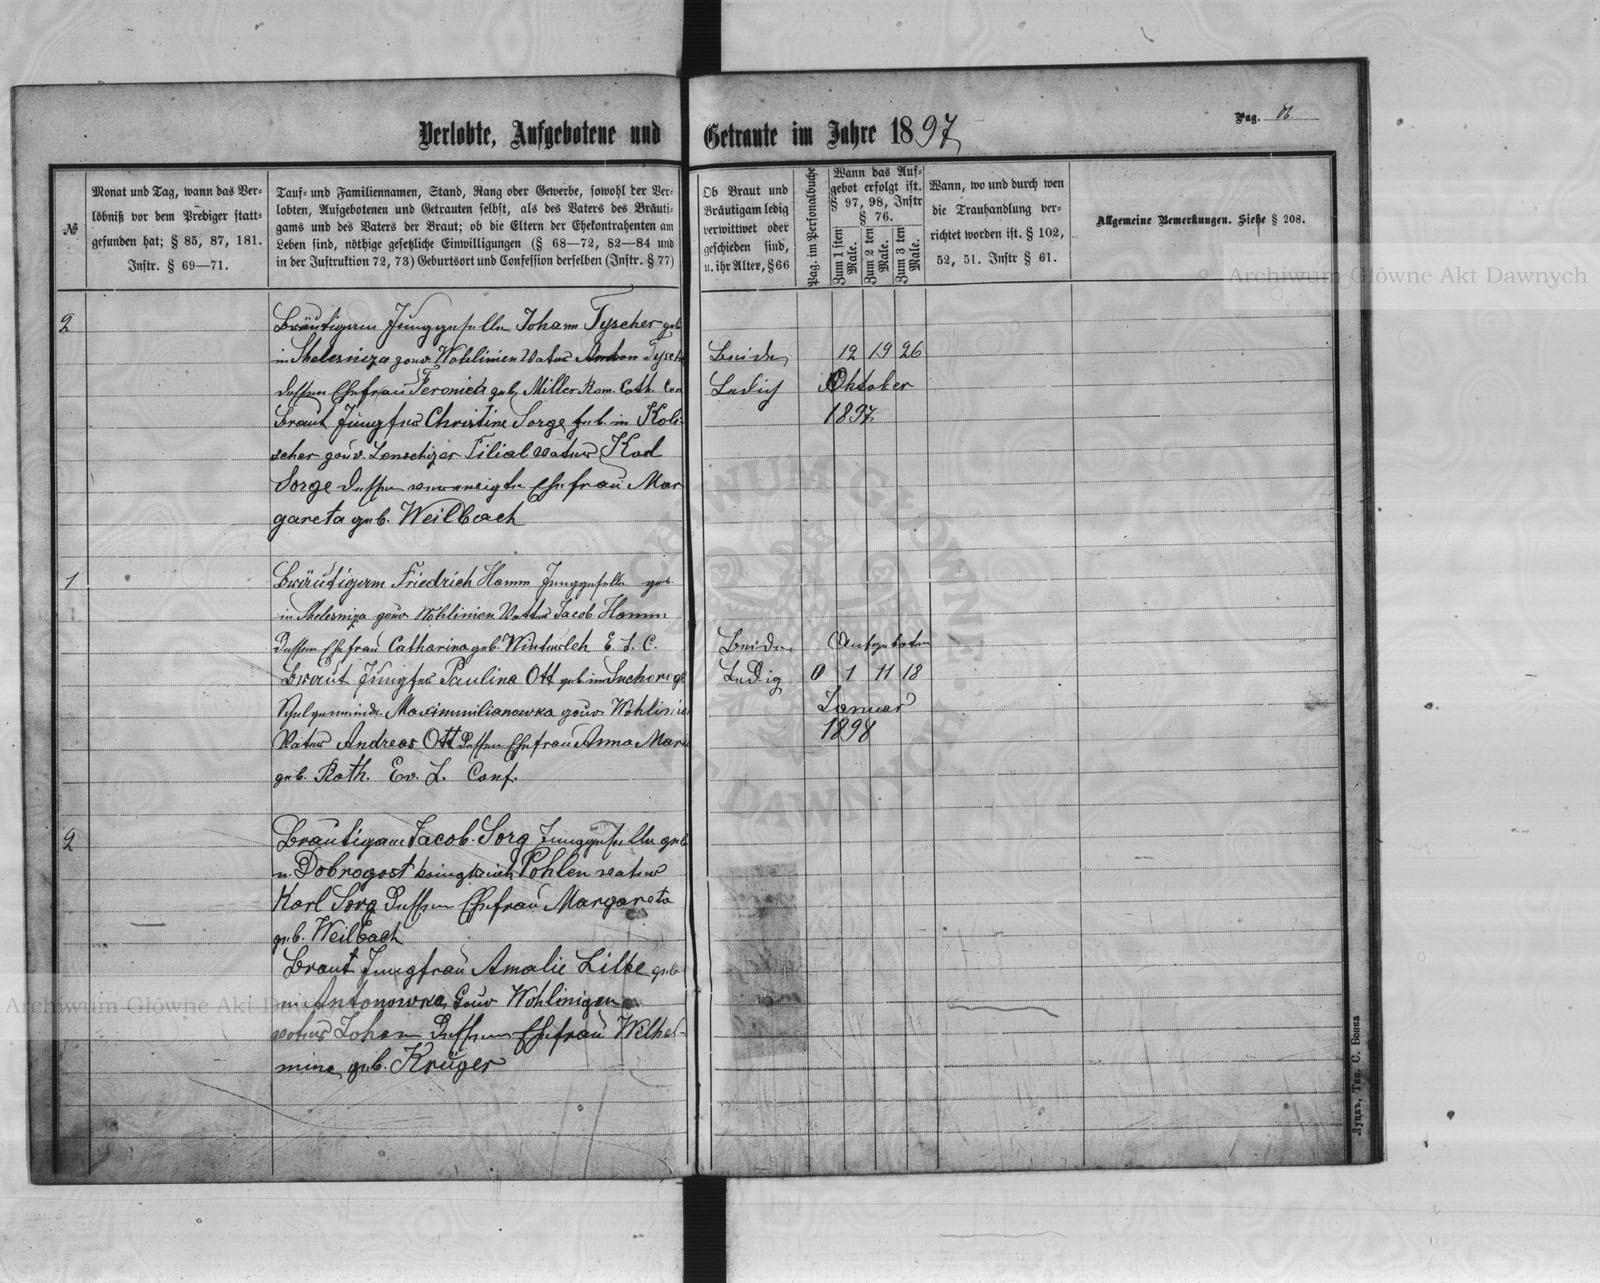 Verlobte, Aufgebotene und Getraute im Jahre 1897
Pag.
№
Monat und Tag, wann das Ver-
löbniß vor dem Prediger statt-
gefunden hat; § 85, 87, 181.
Instr. § 69—71.
Tauf- und Familiennamen, Stand, Rang oder Gewerbe, sowohl der Ver-
lobten, Aufgebotenen und Getrauten selbst, als des Vaters des Bräuti-
gams und des Vaters der Braut; ob die Eltern der Ehekontrahenten am
Leben sind, nöthige gesetzliche Einwilligungen (§ 68—72, 82—84 und
in der Instruktion 72, 73) Geburtsort und Confession derselben (Instr. § 77)
Ob Braut und
Bräutigam ledig
verwittwet oder
geschieden sind,
u. ihr Alter, § 66
Pag. im Personalbuche
Wann das Auf-
gebot erfolgt ist.
§ 97, 98, Instr
§ 76.
Zum 1 sten
Male.
Zum 2 ten
Male.
Zum 3 ten
Male.
Wann, wo und durch wen
die Trauhandlung ver-
richtet worden ist. § 102,
52, 51. Instr § 61.
Allgemeine Bemerkungen. Siehe § 208.
2
Bräutigam Junggeselle Johann Tyscher geb
in Shelesniza gouv. Wohlinien Vater Anton Tysch
dessen Ehefrau Feronica geb. Miller Rom. Cath. Con
Braut Jungfer Christine Sorge geb. in Koli-
scher gouv. Lenschizer Filial vater Karl
Sorge dessen Ehefrau Mar
gareta geb. Weilbach
Beide 12 19 26
Ledig Oktober
1897
1
Bräutigam Friedrich Hamm Junggeselle geb.
in Shelesniza gouv. Wohlinien Vatter Jacob Hamm
dessen Ehefrau Catharina geb. E. L. C.
Braut Jungfer Paulina Ott geb. in
Schulgemeinde Maximmilianowka gouv. Wohlinien
Vater Andreas Ott dessen Ehefrau Anna Mari
geb. Roth. Ev. L. Conf.
Beide Aufgeboten
Ledig 0 1 11 18
Januar
1898
2
Bräutigam Jacob Sorg Junggeselle geb
in Dobrogost Pohlen vater
Karl Sorg dessen Ehefrau Margareta
geb. Weilbach
Braut Jungfrau Amalie Lilke geb
in Antonowka Gouv Wohlinigen
vater Johan dessen Ehefrau Wilhel-
mine geb. Krüger
Луцкъ, Тип. С. Бонка
Archiwum Główne Akt Dawnych
Archiwum Główne Akt Dawnych
ARCHIWUM GŁÓWNE AKT DAWNYCH